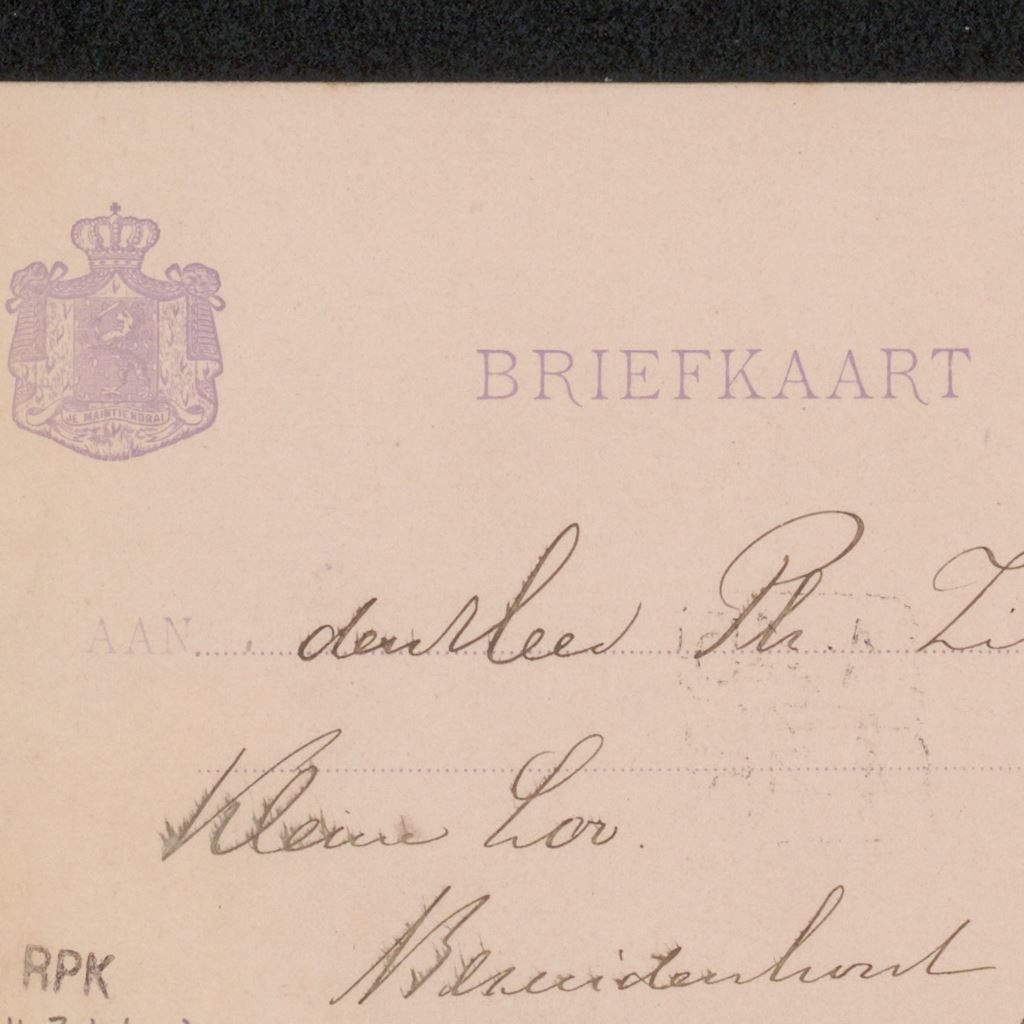 JE MAINTIENDRAI
BRIEFKAART
AAN den Heer Ph. Zi
Kleine Loo.
Bezuidenhout
RPK